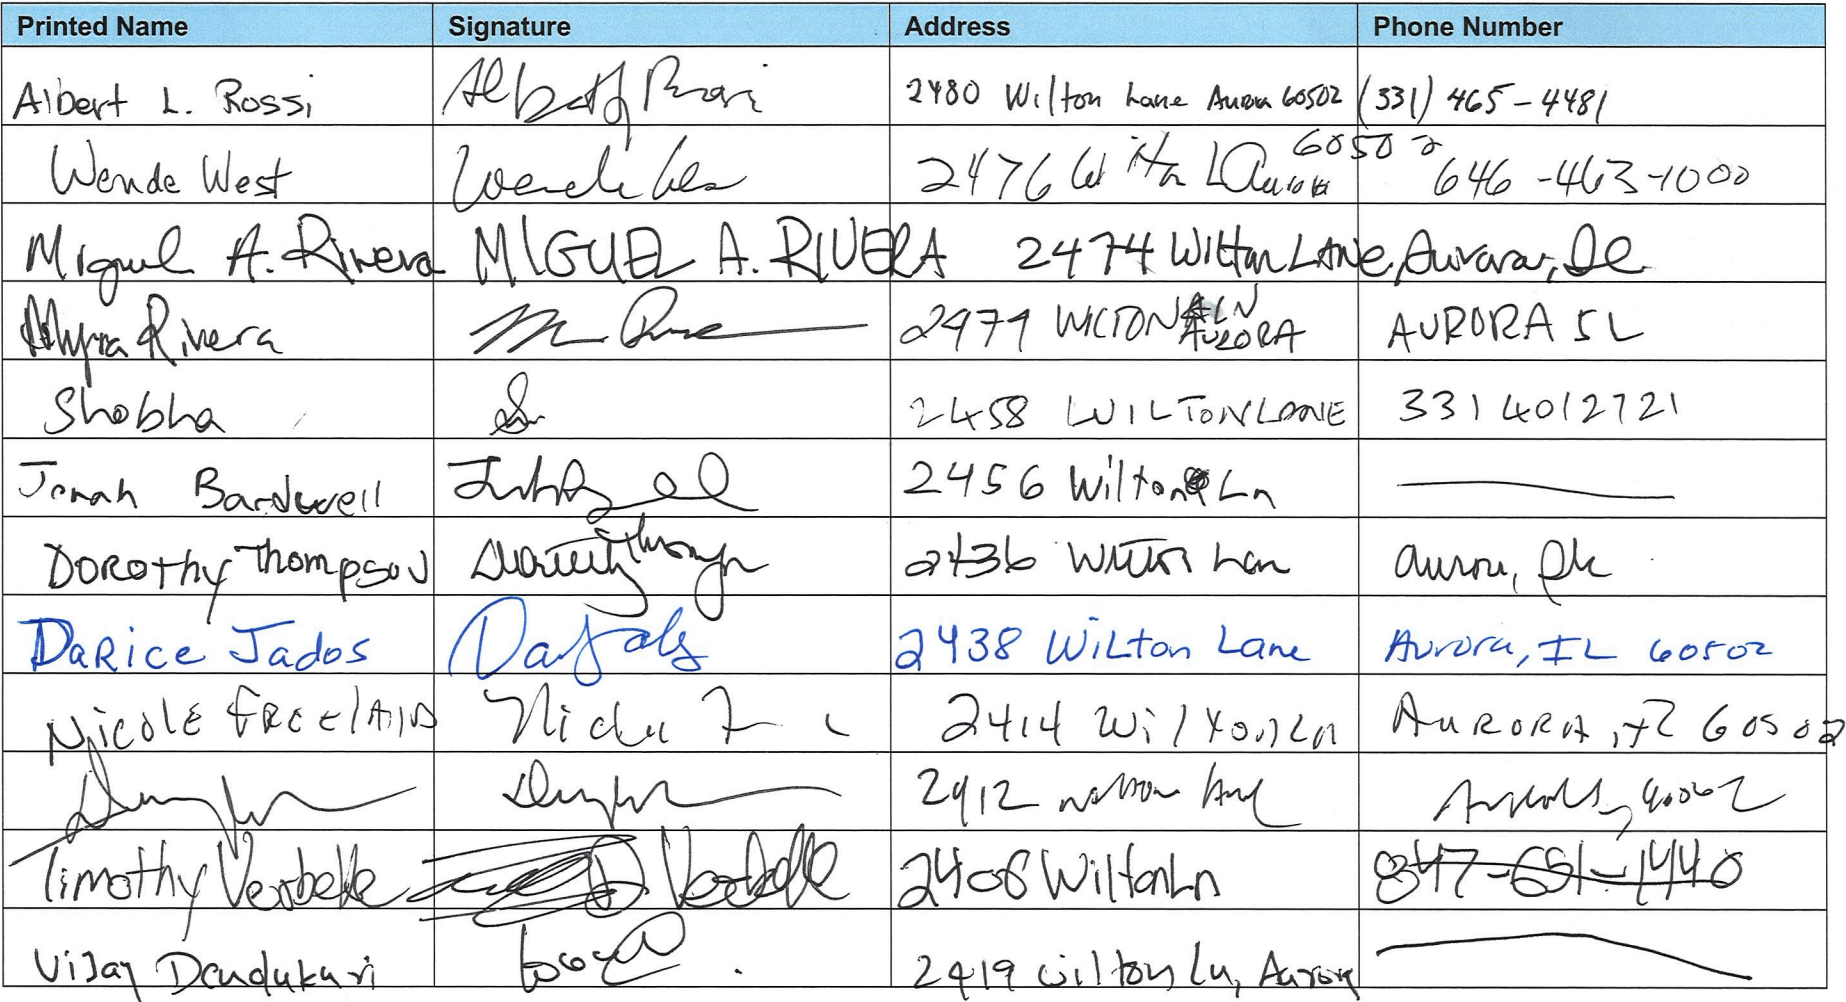 Printed Name Signature Address Phone Number
Albert L. Rossi 2480 Wilton Lane Aurora 60502 (331) 465-4481
Wende West 2476 Wiltn L Aurora 60502 646-463-1000
Miguel A. Rivera MIGUEL A. RIVERA 2474 Wilton LANE, Aurora, Il
Myra Rivera 2474 WILTON LN AURORA AURORA IL
Shobha 2458 WILTON LANE 331 4012721
Jonah Bardwell 2456 Wilton Ln
DOROTHY Thompson Dorothy Thompson 2436 Wilton Lan Aurora, Il
DaRice Jados 2438 WiLton Lane Aurora, IL 60502
Nicole FREELAND 2414 Wilton Ln AURORA, IL 60502
2412
Timothy Verbeke Verbeke 2408 Wilton Ln 847-651-1440
Vijay Dandukuri 2419 Wilton Ln, Aurora